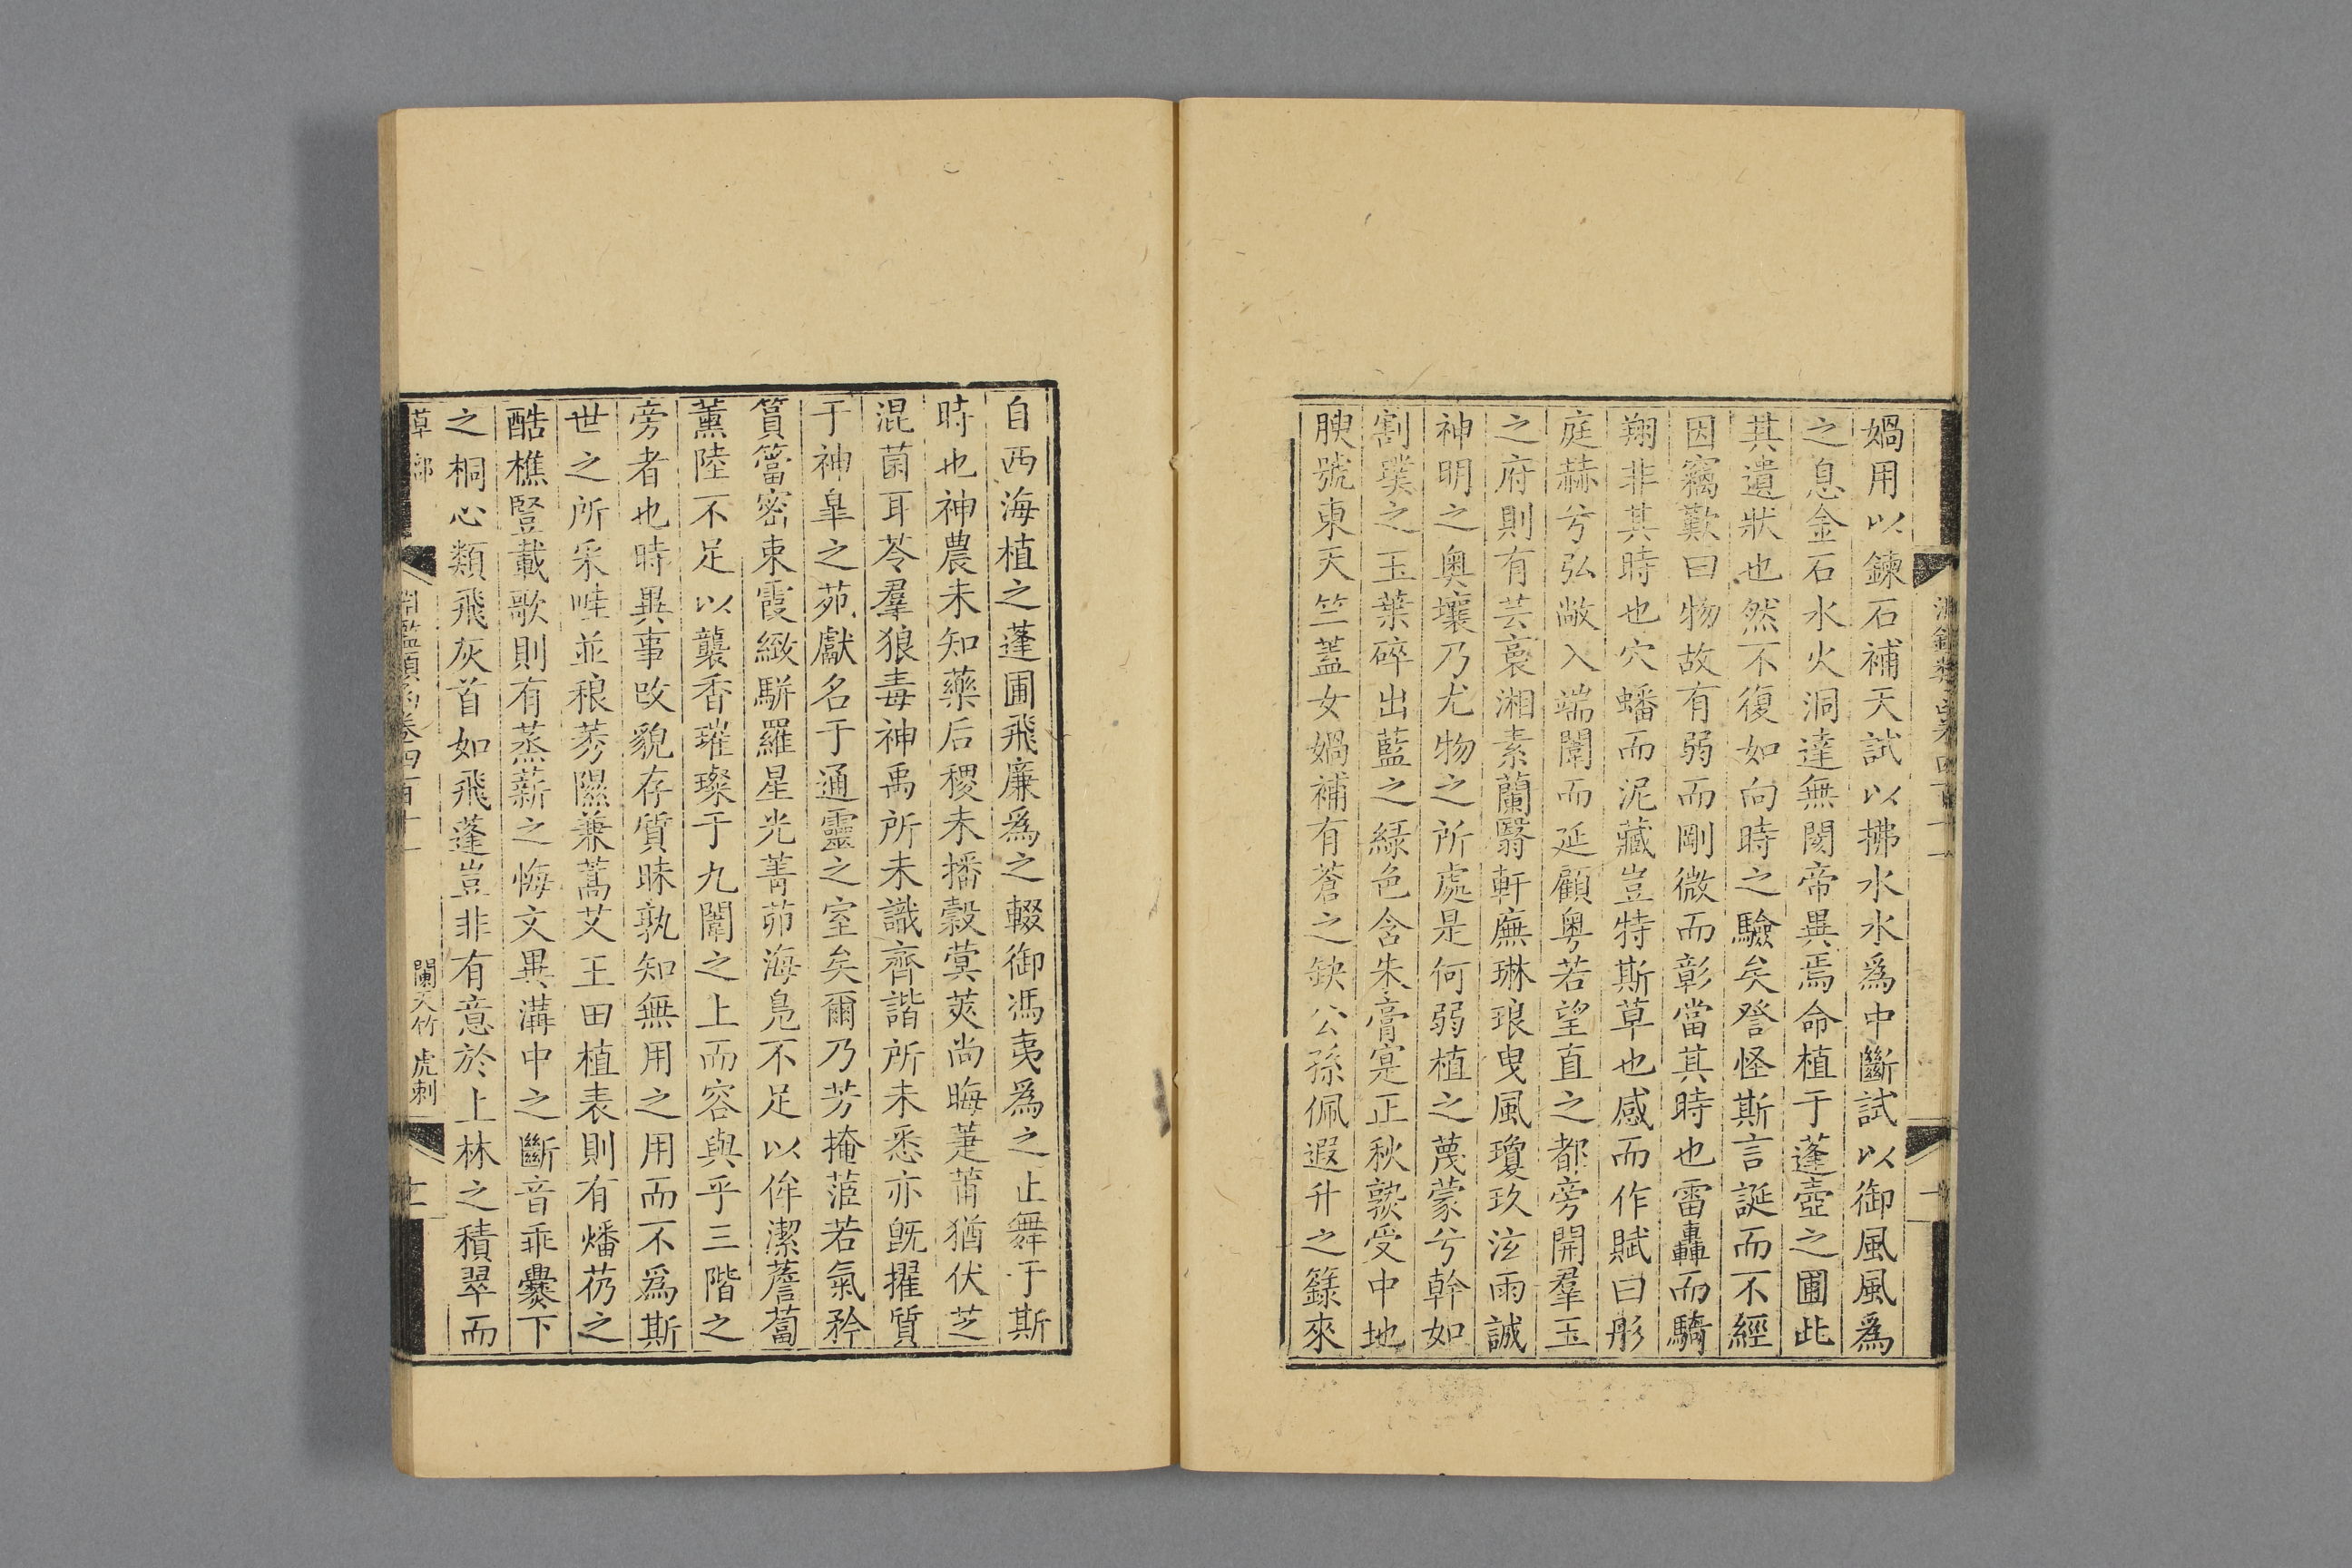 媧用以鍊石補天試以拂水水爲中斷試以御風風爲
之息金石水火洞達無閡帝異焉命植于蓬壺之圃此
其遺狀也然不復如向時之驗矣答怪斯言誕而不經
因竊歎曰物故有弱而剛微而彰當其時也雷轟而驕
翔非其時也穴蟠而泥藏豈特斯草也感而作賦曰彤
庭赫兮弘敞入端闈而延顧粵若望直之都旁開羣玉
之府則有芸裛湘素蘭翳軒廡琳琅曳風瓊玖泫雨誠
神明之奥壤乃尤物之所處是何弱植之蔑蒙兮幹如
割璞之玉葉碎出藍之緑色含朱膏寔正秋欵受中地
腴號東天竺蓋女媧補有蒼之缺公孫佩遐升之籙來
自西海植之蓬圃飛廉爲之輟御馮夷爲之止舞于斯
時也神農未知藥后稷未播穀蓂莢尚晦萐莆猶伏芝
混菌耳苓羣狼毒神禹所未識齊諧所未悉亦旣擢質
于神皐之苑獻名于通靈之室矣爾乃芳掩茝若氣矜
篔簹密東霞緻駢羅星光菁茆海鳧不足以侔潔薝蔔
薰陸不足以襲香璀璨于九闈之上而容與乎三階之
旁者也時異事改貌存質昧孰知無用之用而不爲斯
世之所采哇並稂莠隰兼蒿艾王田植表則有燔芿之
酷樵豎載歌則有蒸薪之悔文異溝中之斷音乖爨下
之桐心類飛灰首如飛蓬豈非有意於上林之積翠而
草部 淵鑑類函卷四百十一 闌天竹 虎刺 十一